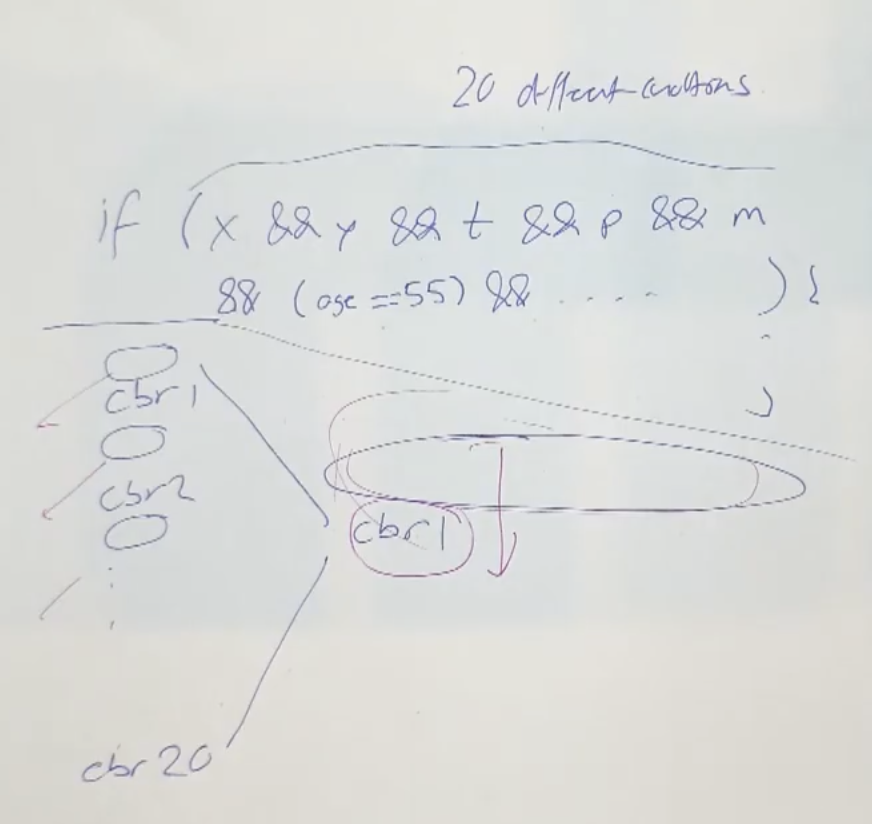 20 different conditions
if (x && y && t && p && m
&& (age ==55) && ..... ) {
}
cbr1
cbr2
cbr1
cbr20